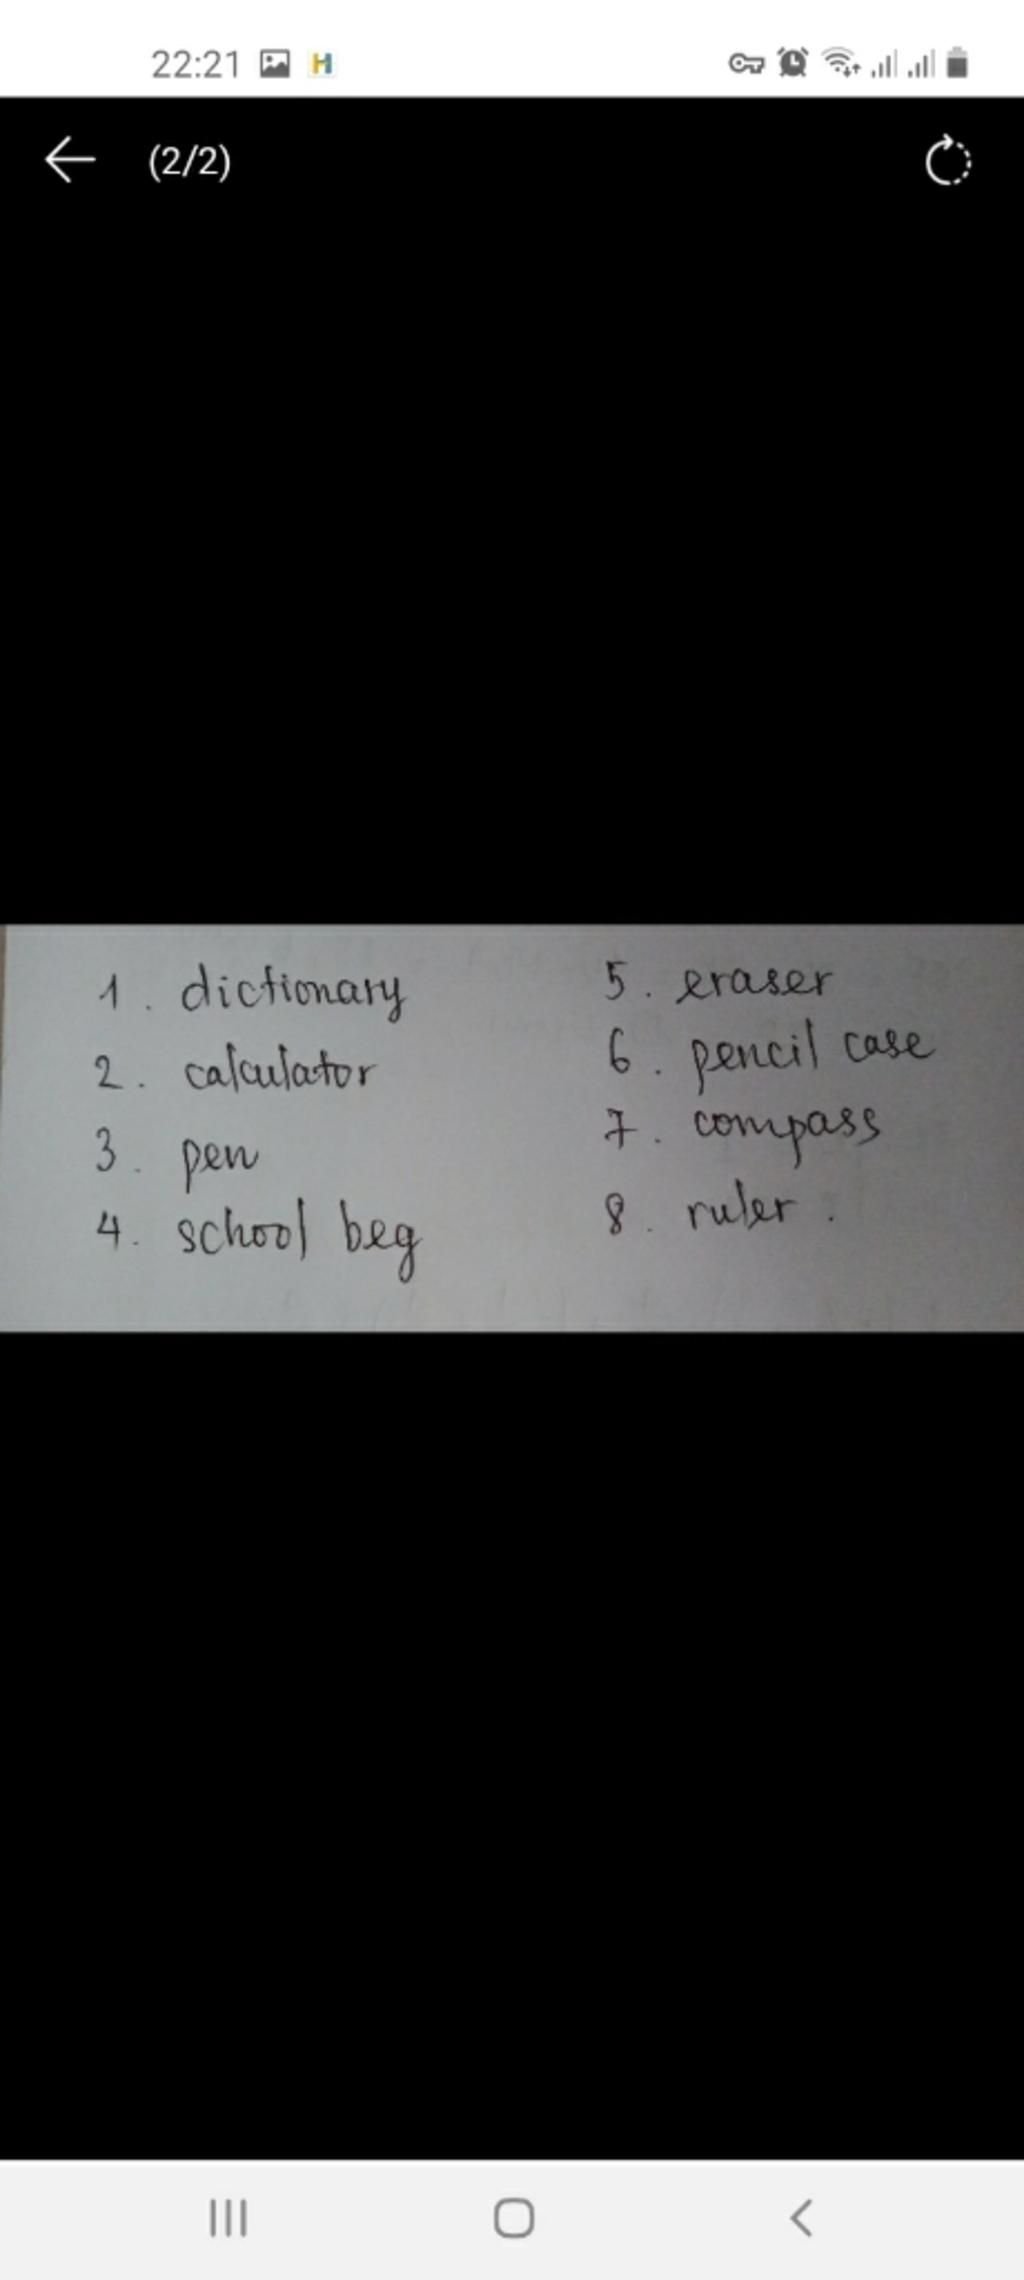 22:21 H
(2/2)
1. dictionary
2. calculator
3. pen
4. school beg
5. eraser
6. pencil case
7. compass
8. ruler.